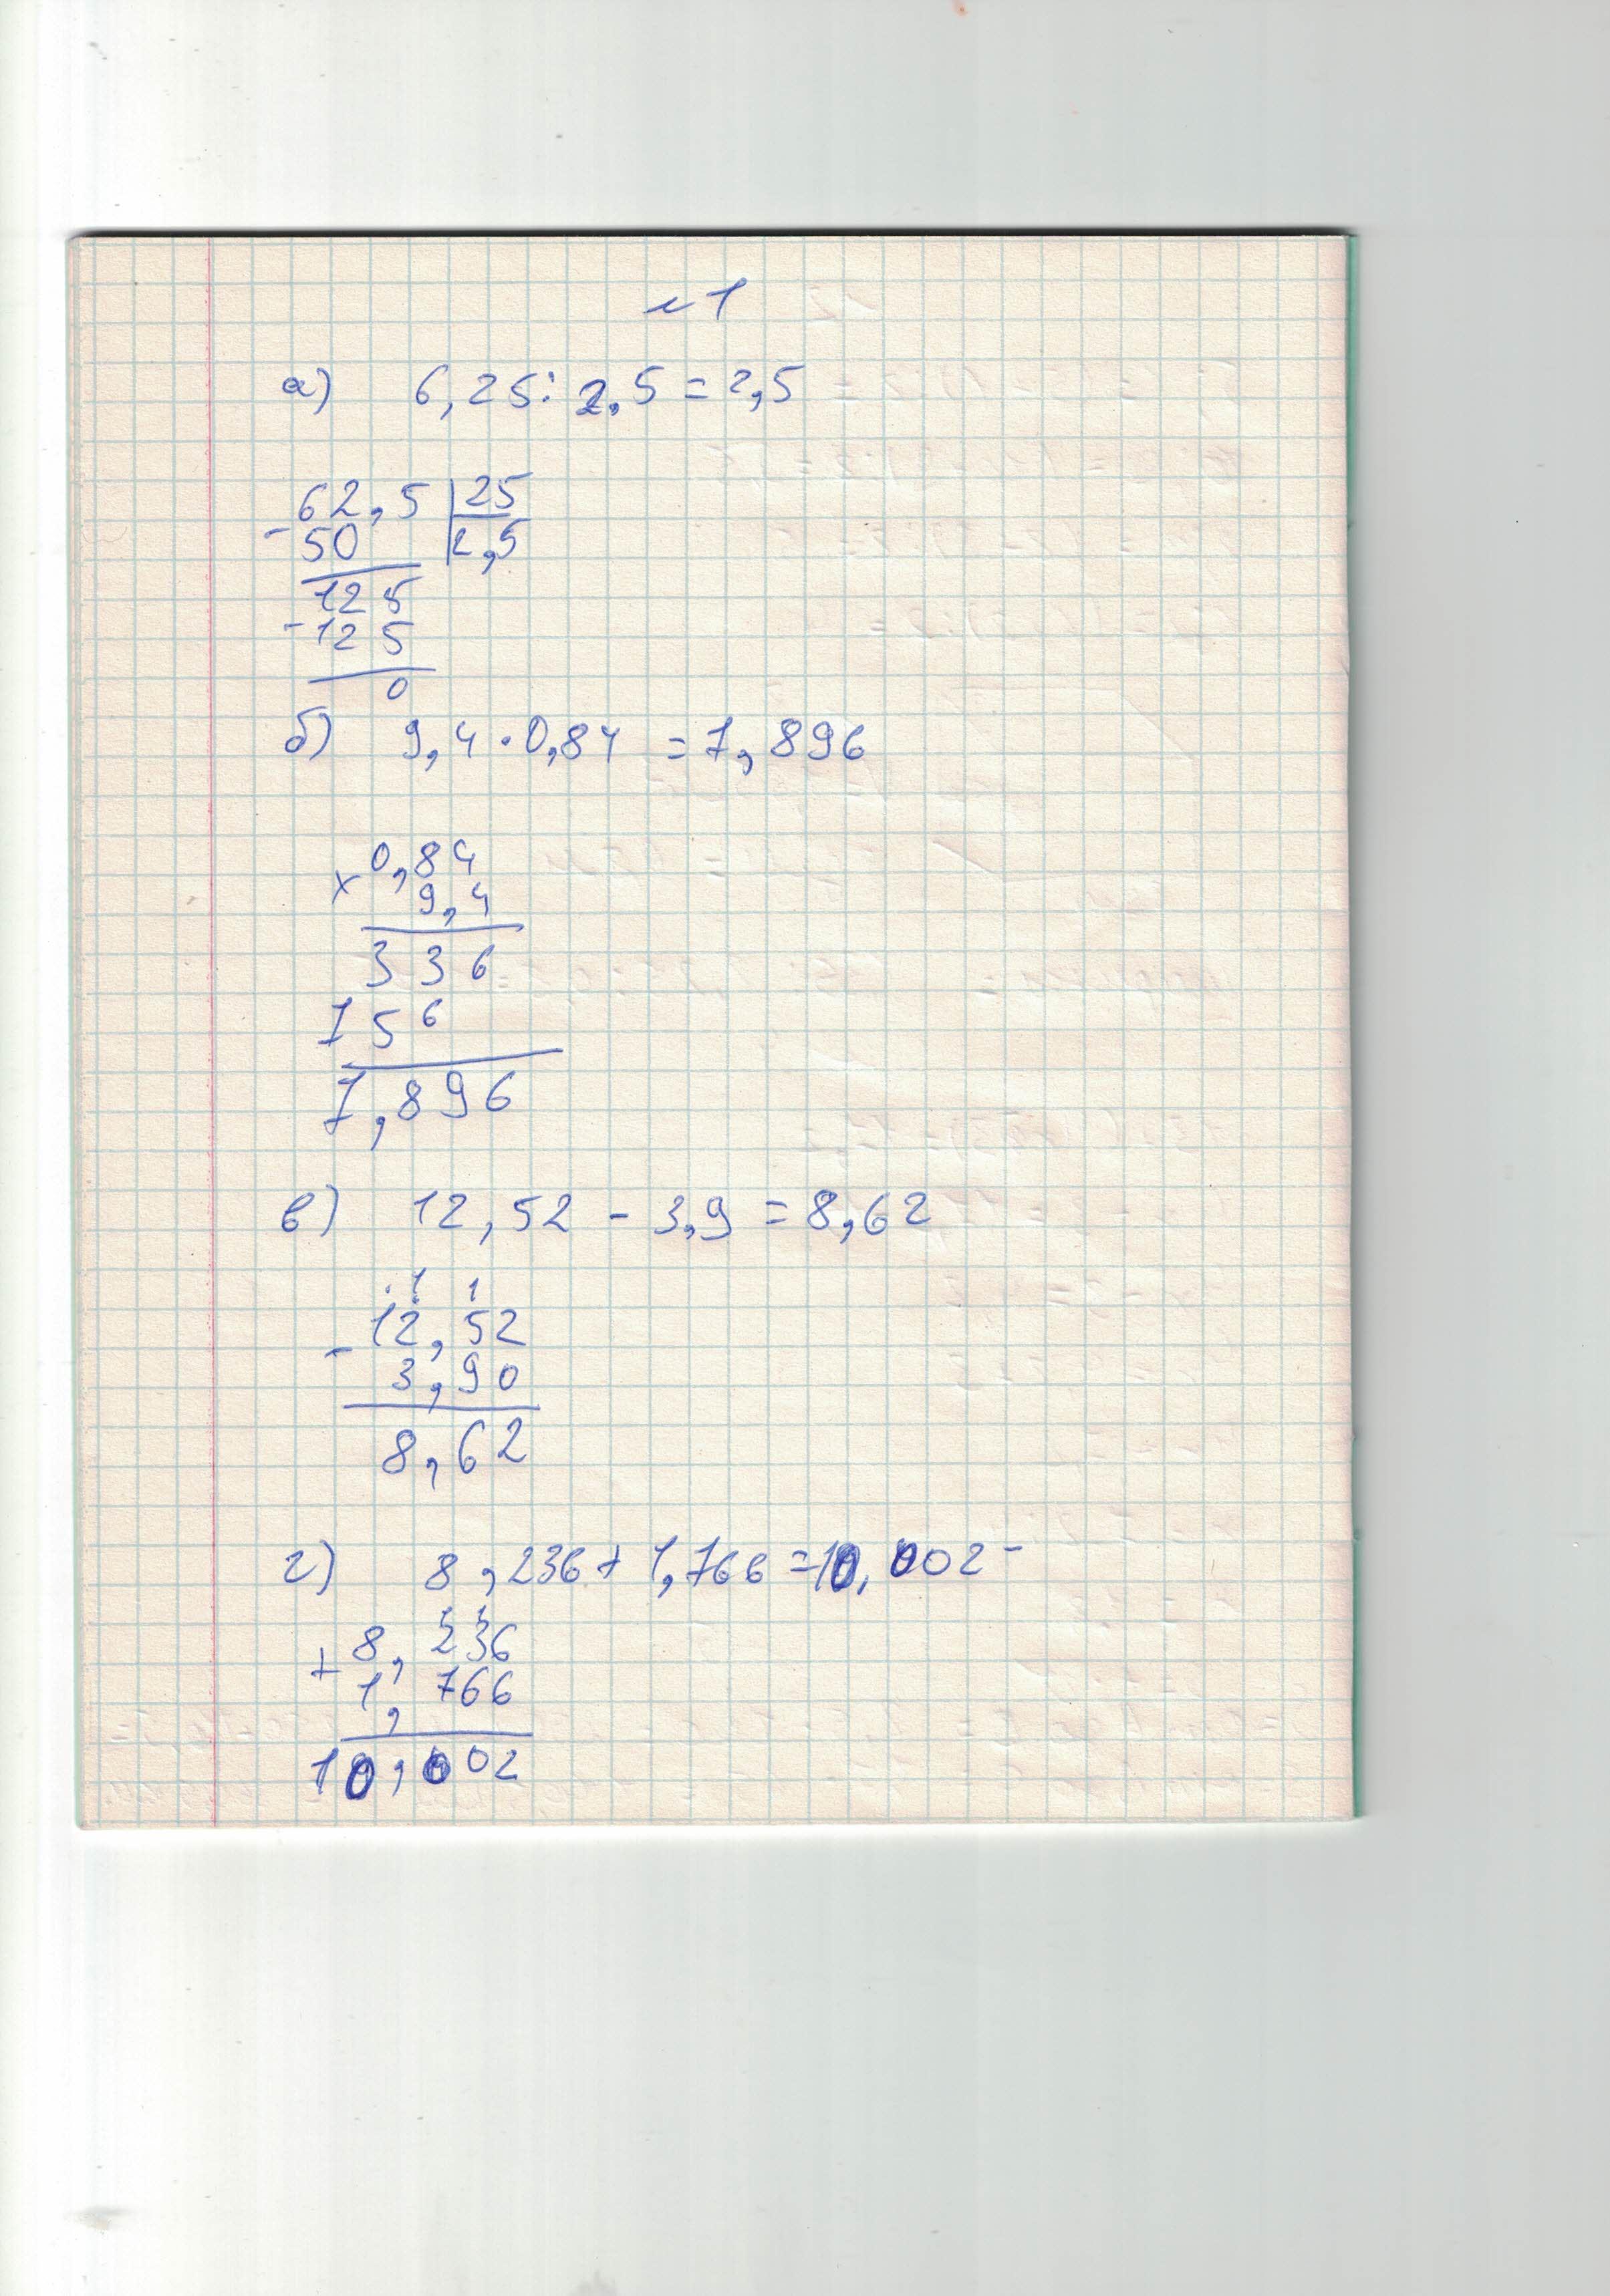 №1
а) 6,25 : 2,5 = 2,5
- 62,5 | 25
50 | 2,5
125
- 125
0
б) 9,4 · 0,84 = 7,896
× 0,84
9,4
336
756
7,896
в) 12,52 - 3,9 = 8,62
1 1
- 12,52
3,90
8,62
г) 8,236 + 1,766 = 10,002 -
1 1
+ 8,236
1,766
10,002